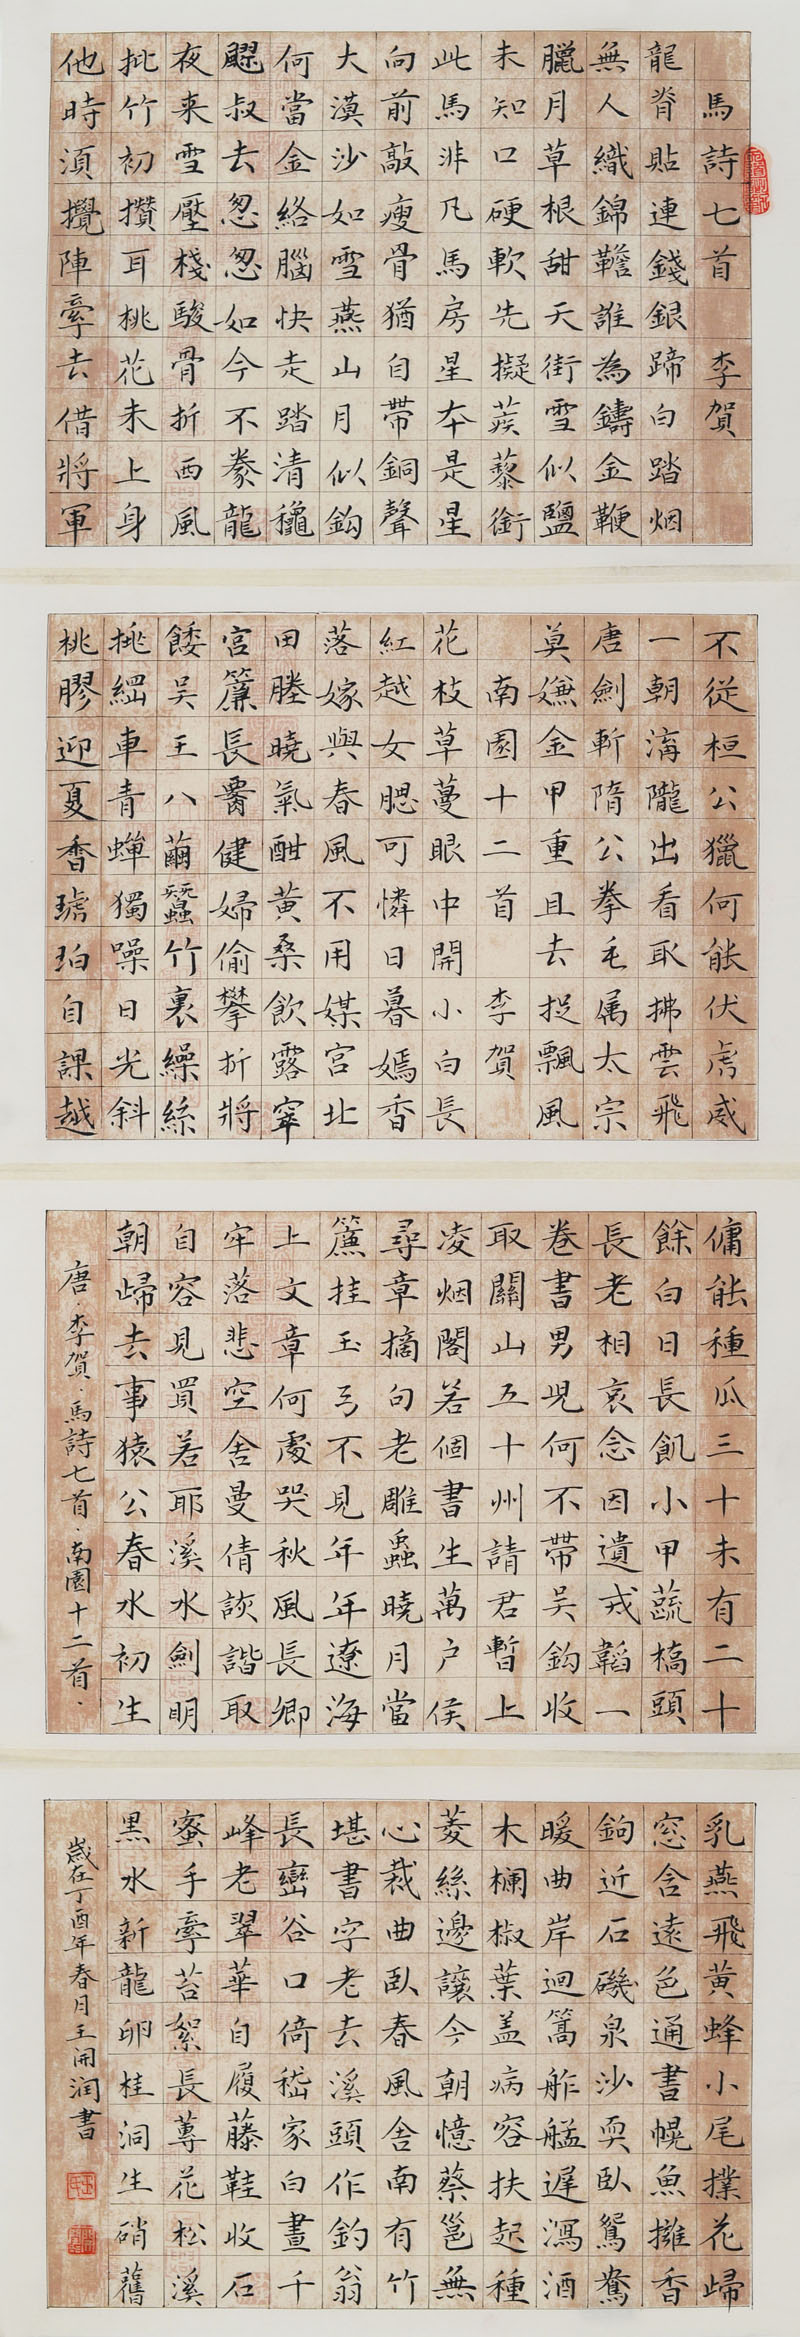 馬詩七首 李賀
龍脊貼連錢銀蹄白踏烟
無人織錦韂誰為鑄金鞭
臘月草根甜天街雪似鹽
未知口硬軟先擬蒺藜銜
此馬非凡馬房星本是星
向前敲瘦骨猶自帶銅聲
大漠沙如雪燕山月似鈎
何當金絡腦快走踏清穐
飂叔去怱怱如今不豢龍
夜来雪壓棧駿骨折西風
批竹初攢耳桃花未上身
他時須攪陣牽去借將軍
不從桓公獵何能伏虎威
一朝溝隴出看取拂雲飛
唐劍斬隋公拳毛属太宗
莫嫌金甲重且去捉飄風
南園十二首 李賀
花枝草蔓眼中開小白長
紅越女腮可憐日暮嫣香
落嫁與春風不用媒宮北
田塍曉氣酣黃桑飲露窣
宮簾長腰健婦偷攀折將
餧吳王八繭蠶竹裏繰絲
挑網車青蟬獨噪日光斜
桃膠迎夏香琥珀自課越
傭能種瓜三十未有二十
餘白日長飢小甲蔬橋頭
長老相哀念因遺戎韜一
卷書男兒何不帶吳鈎收
取關山五十州請君暫上
凌烟閣若個書生萬户侯
尋章摘句老雕蟲曉月當
簾挂玉弓不見年年遼海
上文章何處哭秋風長卿
牢落悲空舍曼倩詼諧取
自容見買若耶溪水劍明
朝歸去事猿公春水初生
唐·李賀·馬詩七首·南園十二首·
乳燕飛黄蜂小尾撲花歸
窓含遠色通書幌魚擁香
鈎近石磯泉沙耎臥鴛鴦
暖曲岸迴篙舴艋遲瀉酒
木欄椒葉盖病容扶起種
菱絲邊讓今朝憶蔡邕無
心裁曲臥春風舍南有竹
堪書字老去溪頭作釣翁
長巒谷口倚嵇家白晝千
峰老翠華自履藤鞋收石
蜜手牽苔絮長蓴花松溪
黑水新龍卵桂洞生硝舊
歲在丁酉年春月王開润書